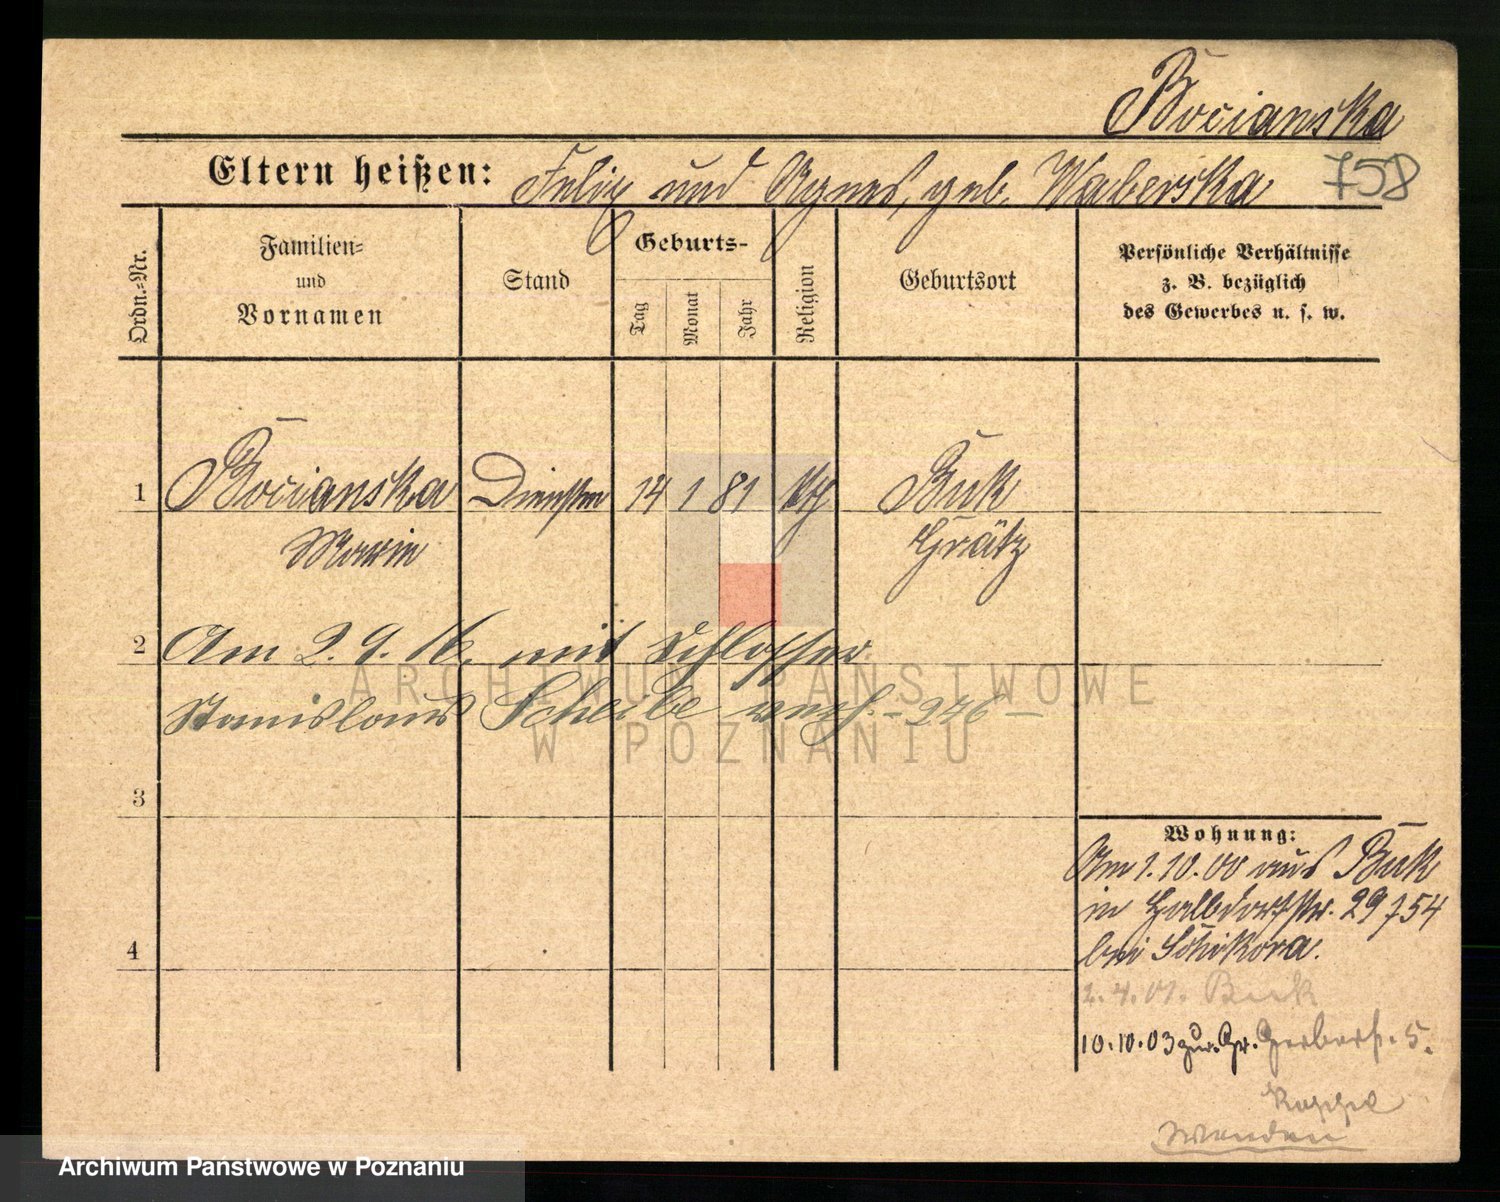 Bocianska
Eltern heißen: Felix und Agnes, geb. Waberska 758
Ordn.=Nr.
Familien=
und
Vornamen
Stand
Geburts-
Tag
Monat
Jahr
Religion
Geburtsort
Persönliche Verhältnisse
z. B. bezüglich
des Gewerbes u. s. w.
1 Bocianska Dienstm 14 1 81 kth Buk
Marie Grätz
2 Am 2. 9. 16. mit Schlosser
Stanislaus Scheibe verh. - 246 -
ARCHIWUM PAŃSTWOWE
W POZNANIU
3
4
Wohnung:
Am 1.10.00 aus Buk
in Halbdorfstr. 29 754
bei Schikora.
2.4.01. Buk
10.10.03 zur. Gr. Gerberst. 5.
Wenden
Archiwum Państwowe w Poznaniu